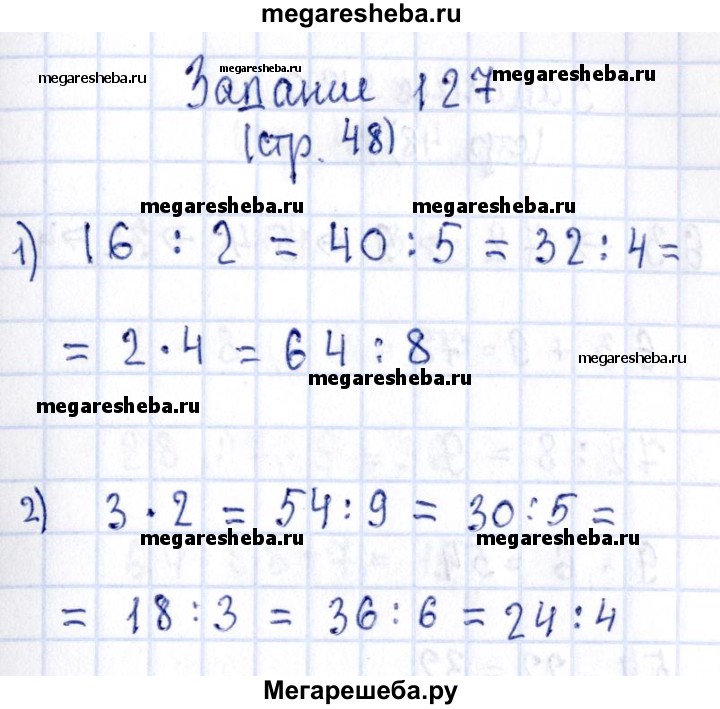 megaresheba.ru
Задание 127
megaresheba.ru megaresheba.ru megaresheba.ru
(стр. 48)
megaresheba.ru megaresheba.ru
1) 16 : 2 = 40 : 5 = 32 : 4 =
= 2 · 4 = 64 : 8
megaresheba.ru
megaresheba.ru
megaresheba.ru
2) 3 · 2 = 54 : 9 = 30 : 5 =
megaresheba.ru megaresheba.ru
= 18 : 3 = 36 : 6 = 24 : 4
Мегарешеба.ру